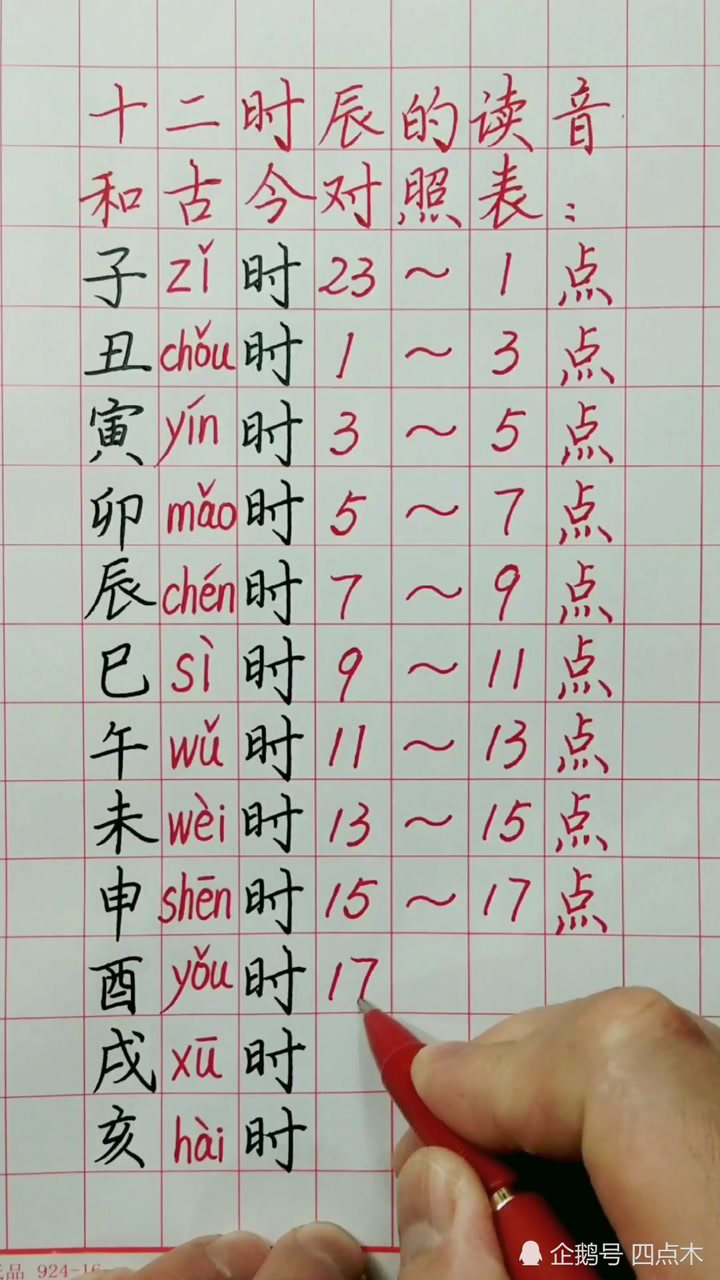 十二时辰的读音
和古今对照表：
子 zǐ 时 23～1点
丑 chǒu 时 1～3点
寅 yín 时 3～5点
卯 mǎo 时 5～7点
辰 chén 时 7～9点
巳 sì 时 9～11点
午 wǔ 时 11～13点
未 wèi 时 13～15点
申 shēn 时 15～17点
酉 yǒu 时 17
戌 xū 时
亥 hài 时
企鹅号 四点木
品 924-16